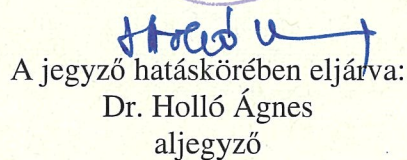 A jegyző hatáskörében eljárva:
Dr. Holló Ágnes
aljegyző